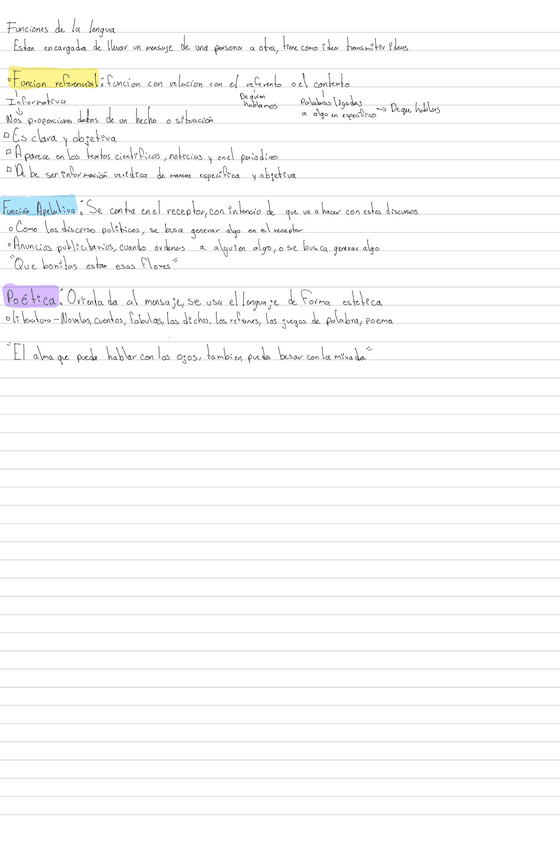 Funciones de la lengua
Estan encargada de llevar un mensaje de una persona a otra, tiene como idea transmitir ideas
Funcion referencial: funcion con relacion con el referente o el contexto
Informativa
De quien hablamos
Palabras ligadas a algo en especifico → De que hablas
Nos proporciona datos de un hecho o situación
Es clara y objetiva
Aparece en los textos cientificos, noticias y en el periodico
Debe ser información veridica de manera especifica y objetiva
Función Apelativa: Se centra en el receptor, con intencio de que va a hacer con estos discursos
Como los discrso politicos, se busa generar algo en el receptor
Anuncios publicitarios, cuando ordenas a alguien algo, o se busca generar algo
"Que bonitas estan esas flores"
Poética: Orientada al mensaje, se usa el lenguaje de forma estetica
literatura - Novelas, cuentos, fabulas, los dichos, los refranes, los juegos de palabra, poema
"El alma que puede hablar con los ojos, tambien puede besar con la mirada"